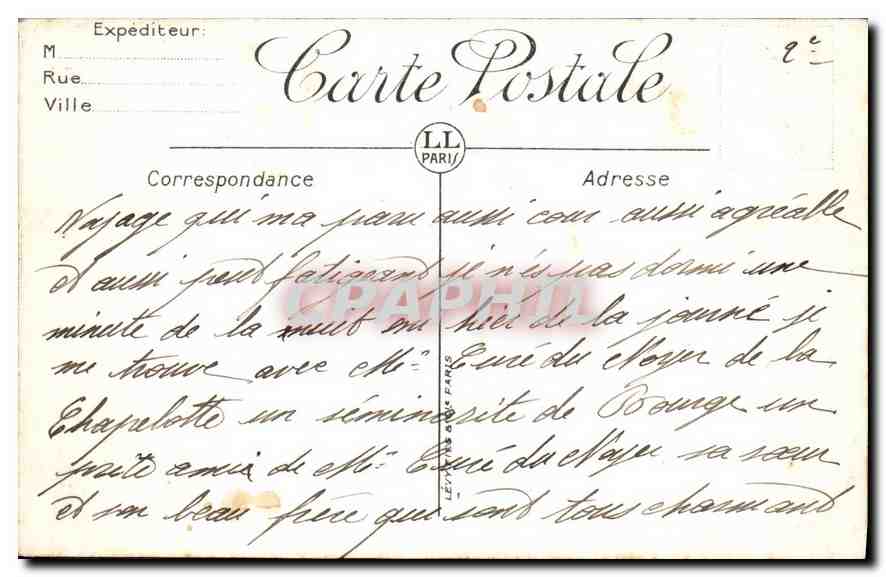 Expéditeur:
M
Rue
Ville
Carte Postale
2e
LL
PARIS
Correspondance
Adresse
Voyage qui ma paru aussi cour aussi agréable
et aussi peut fatigeant je n'és pas dormi une
minute de la nuit ni hier de la journé je
me trouve avec Mr Curé du Noyer de la
Chapelotte un séminariste de Bourge un
prite amie de Mr Curé du Noyer sa sœur
et son beau frére qui sont tous charmant
CPAPHIL
LÉVY FILS & Cie PARIS